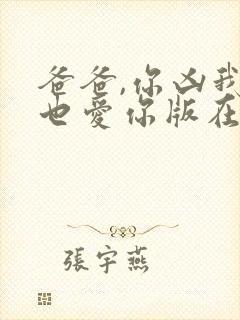 爸爸,你凶我
也愛你版在
張宇燕